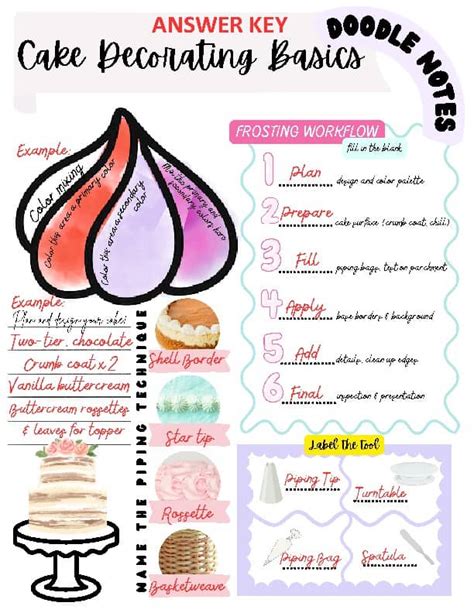 ANSWER KEY
Cake Decorating Basics
DOODLE NOTES
Example:
Color mixing
Color this area a primary color
Color this area a secondary color
Mix the primary and secondary colors here
FROSTING WORKFLOW
fill in the blank
1 Plan design and color palette
2 Prepare cake surface (crumb coat, chill)
3 Fill piping bag, test on parchment
4 Apply base borders & background
5 Add details, clean up edges
6 Final inspection & presentation
Example:
Plan and design your cake:
Two-tier, chocolate
Crumb coat x 2
Vanilla buttercream
Buttercream rossettes
& leaves for topper
NAME THE PIPING TECHNIQUE
Shell Border
Star tip
Rossette
Basketweave
Label The Tool
Piping Tip
Turntable
Piping Bag
Spatula